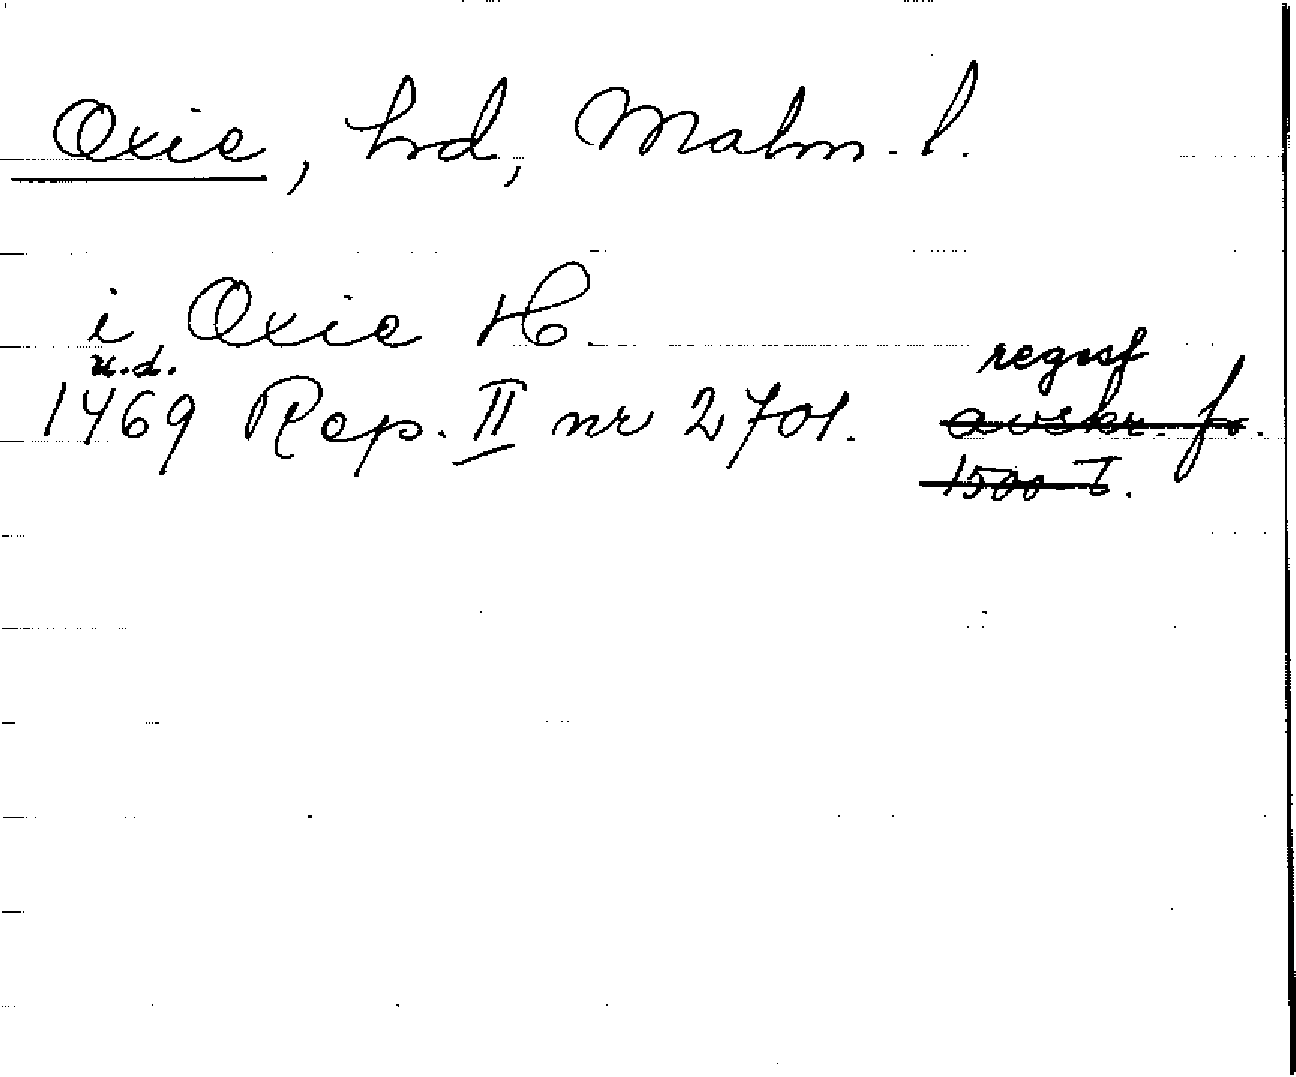 Oxie, hd, Malm. l.
i Oxie H
u.d.
1469 Rep. II nr 2701. regist
avskr. fr.
1500 T.